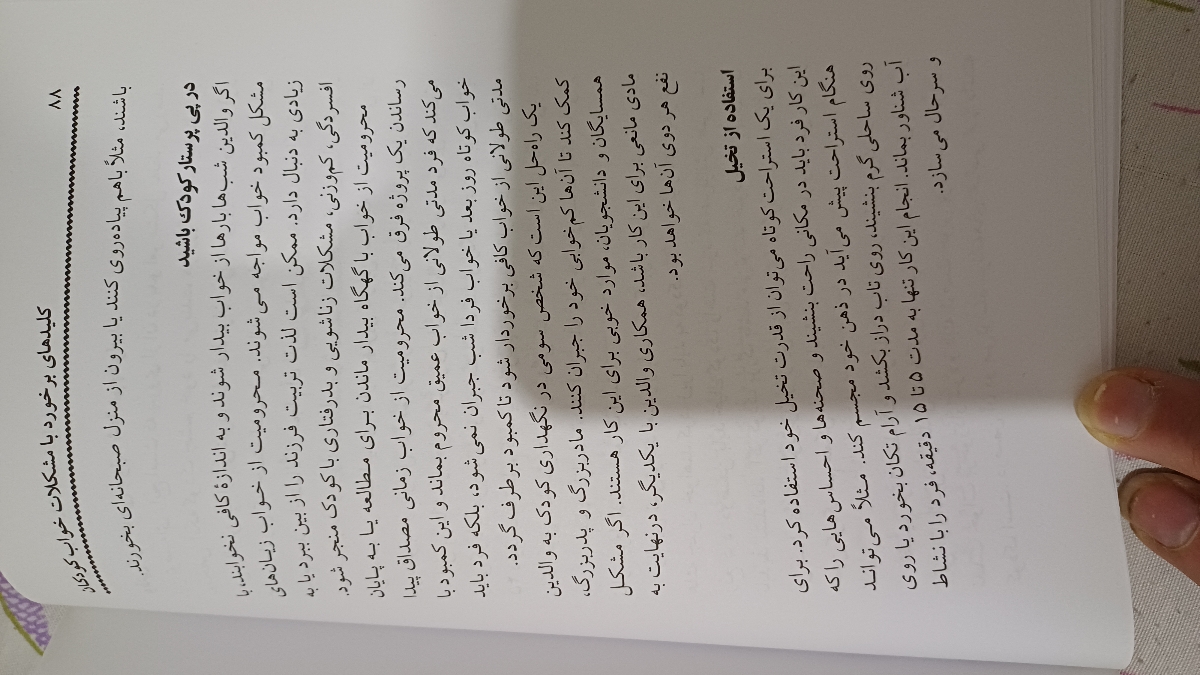 ۸۸ کلیدهای برخورد با مشکلات خواب کودکان
باشند، مثلاً باهم پیاده‌روی کنند یا بیرون از منزل صبحانه‌ای بخورند.
در پی پرستار کودک باشید
اگر والدین شب‌ها بارها از خواب بیدار شوند و به اندازهٔ کافی نخوابند، با
مشکل کمبود خواب مواجه می‌شوند. محرومیت از خواب زیان‌های
زیادی به دنبال دارد. ممکن است لذت تربیت فرزند را از بین ببرد یا به
افسردگی، کم‌وزنی، مشکلات زناشویی و بدرفتاری با کودک منجر شود.
محرومیت از خواب با گهگاه بیدار ماندن برای مطالعه یا به پایان
رساندن یک پروژه فرق می‌کند. محرومیت از خواب زمانی مصداق پیدا
می‌کند که فرد مدتی طولانی از خواب عمیق محروم بماند و این کمبود با
خواب کوتاه روز بعد یا خواب فردا شب جبران نمی‌شود، بلکه فرد باید
مدتی طولانی از خواب کافی برخوردار شود تا کمبود برطرف گردد.
یک راه‌حل این است که شخص سومی در نگهداری کودک به والدین
کمک کند تا آن‌ها کم‌خوابی خود را جبران کنند. مادربزرگ و پدربزرگ،
همسایگان و دانشجویان، موارد خوبی برای این کار هستند. اگر مشکل
مادی مانعی برای این کار باشد، همکاری والدین با یکدیگر، درنهایت به
نفع هر دوی آن‌ها خواهد بود.
استفاده از تخیل
برای یک استراحت کوتاه می‌توان از قدرت تخیل خود استفاده کرد. برای
این کار فرد باید در مکانی راحت بنشیند و صحنه‌ها و احساس‌هایی را که
هنگام استراحت پیش می‌آید در ذهن خود مجسم کند. مثلاً می‌تواند
روی ساحلی گرم بنشیند، روی تاب دراز بکشد و آرام تکان بخورد یا روی
آب شناور بماند. انجام این کار تنها به مدت ۵ تا ۱۵ دقیقه، فرد را با نشاط
و سرحال می‌سازد.